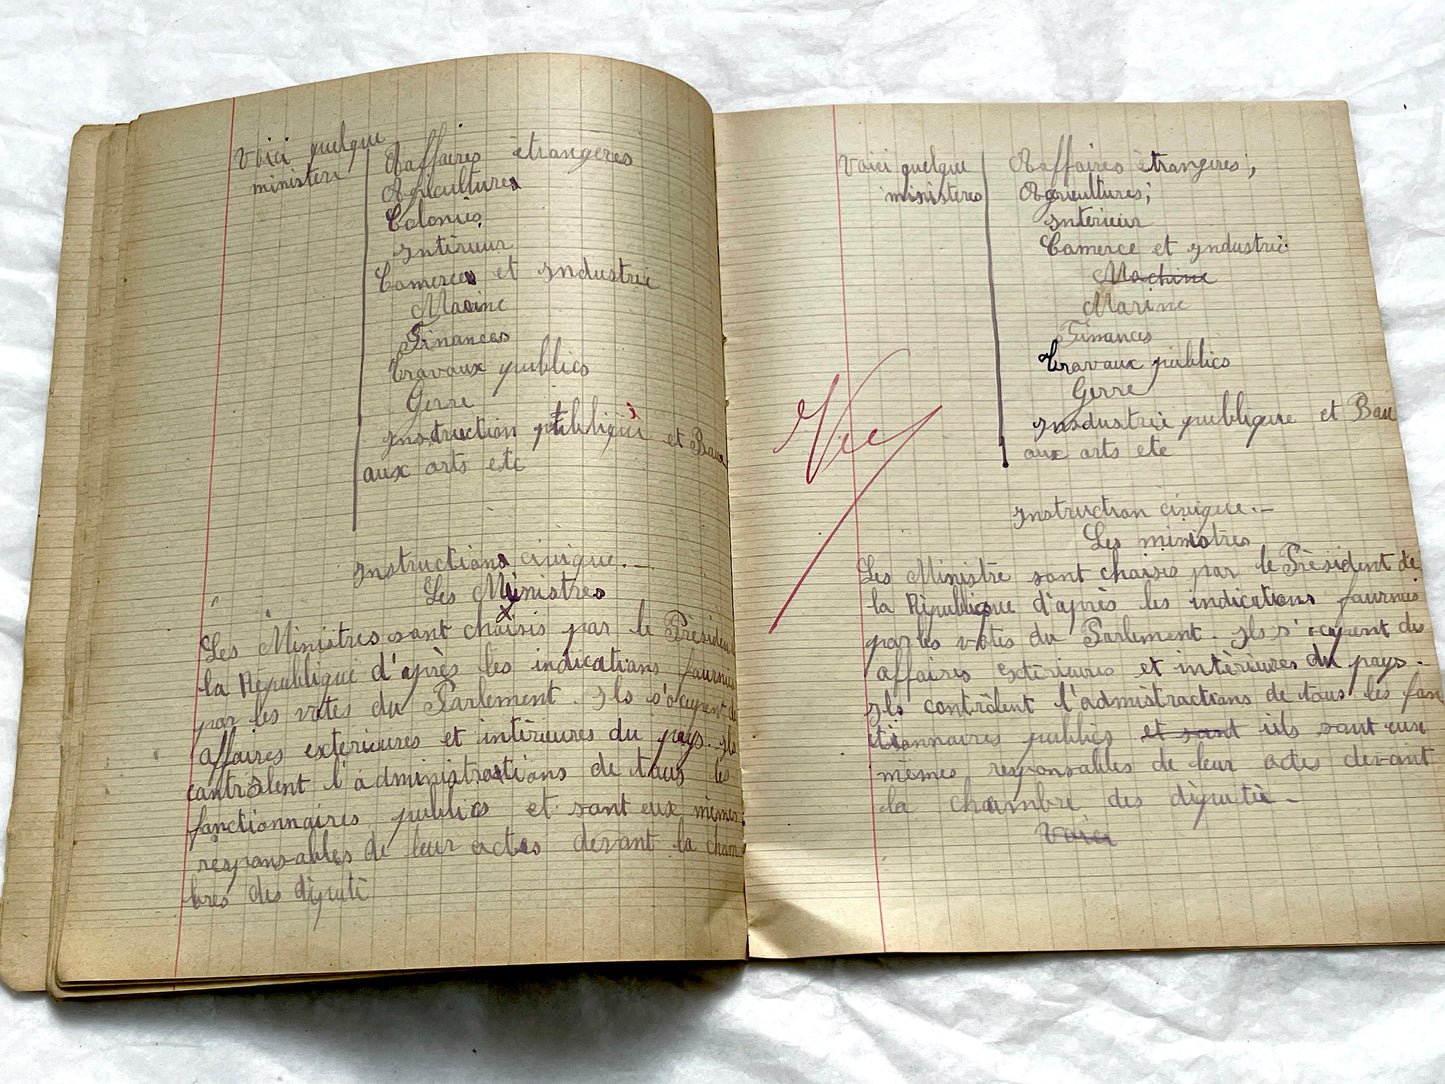 Voici quelque
ministeri
Aaffaires étrangères
Agricultures
Colonies
Intirieur
Comerces et Industrie
Marine
Finances
Travaux publics
Gerre
Instruction publiqie et Beau
aux arts etc
Instructions civique._
Les Ministres
Les Ministres sont choisis par le Président
la République d'après les indications fournies
par les votes du Parlement. Ils s'ocupent de
affaires extérieures et intérieures du pays. Ils
contrôlent l'administrations de tous les
fonctionnaires publics et sont eux mêmes
résponsables de leur actes devant la cham
bres des députè
Voici quelque
ministeres
Aaffaires ètrangeres;
Agricultures;
Intèrieur
Comerce et Industrie.
Machine
Marine
Finances
Travaux publics
Gerre
Industrie publique et Bau
aux arts etc
Instruction civique._
Les ministres
Les Ministre sont choisis par le Prèsident de
la République d'après les indications fournies
par les votes du Parlement. Ils s'ocupent des
affaires extèrieures et intèrieures du pays.
Ils contrôlent l'admistractions de tous les fon
ctionnaires publics et sont ils sont eux
mêmes responsables de leur actes devant
la chambre des députè_
Voici
Vu